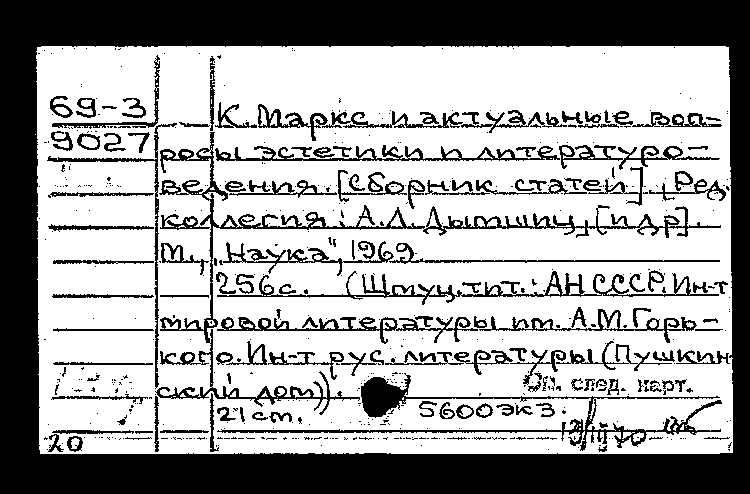 69-3
9027
К. Маркс и актуальные воп-
росы эстетики и литературо-
ведения. [Сборник статей]. [Ред.
коллегия: А.Л. Дымшиц, [и др].
М., "Наука", 1969.
256с. (Шмуц.тит.: АН СССР. Ин-т
мировой литературы им. А.М. Горь-
кого. Ин-т рус. литературы (Пушкин-
ский дом)).
См. след. карт.
21 см. 5600 экз.
20